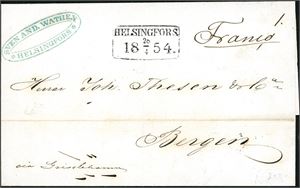 SVEN AND. WATHEN
HELSINGFORS
HELSINGFORS.
18 20/4 54.
Franco
Herrer Joh. Thesen & Co
Bergen
via Grislehamn